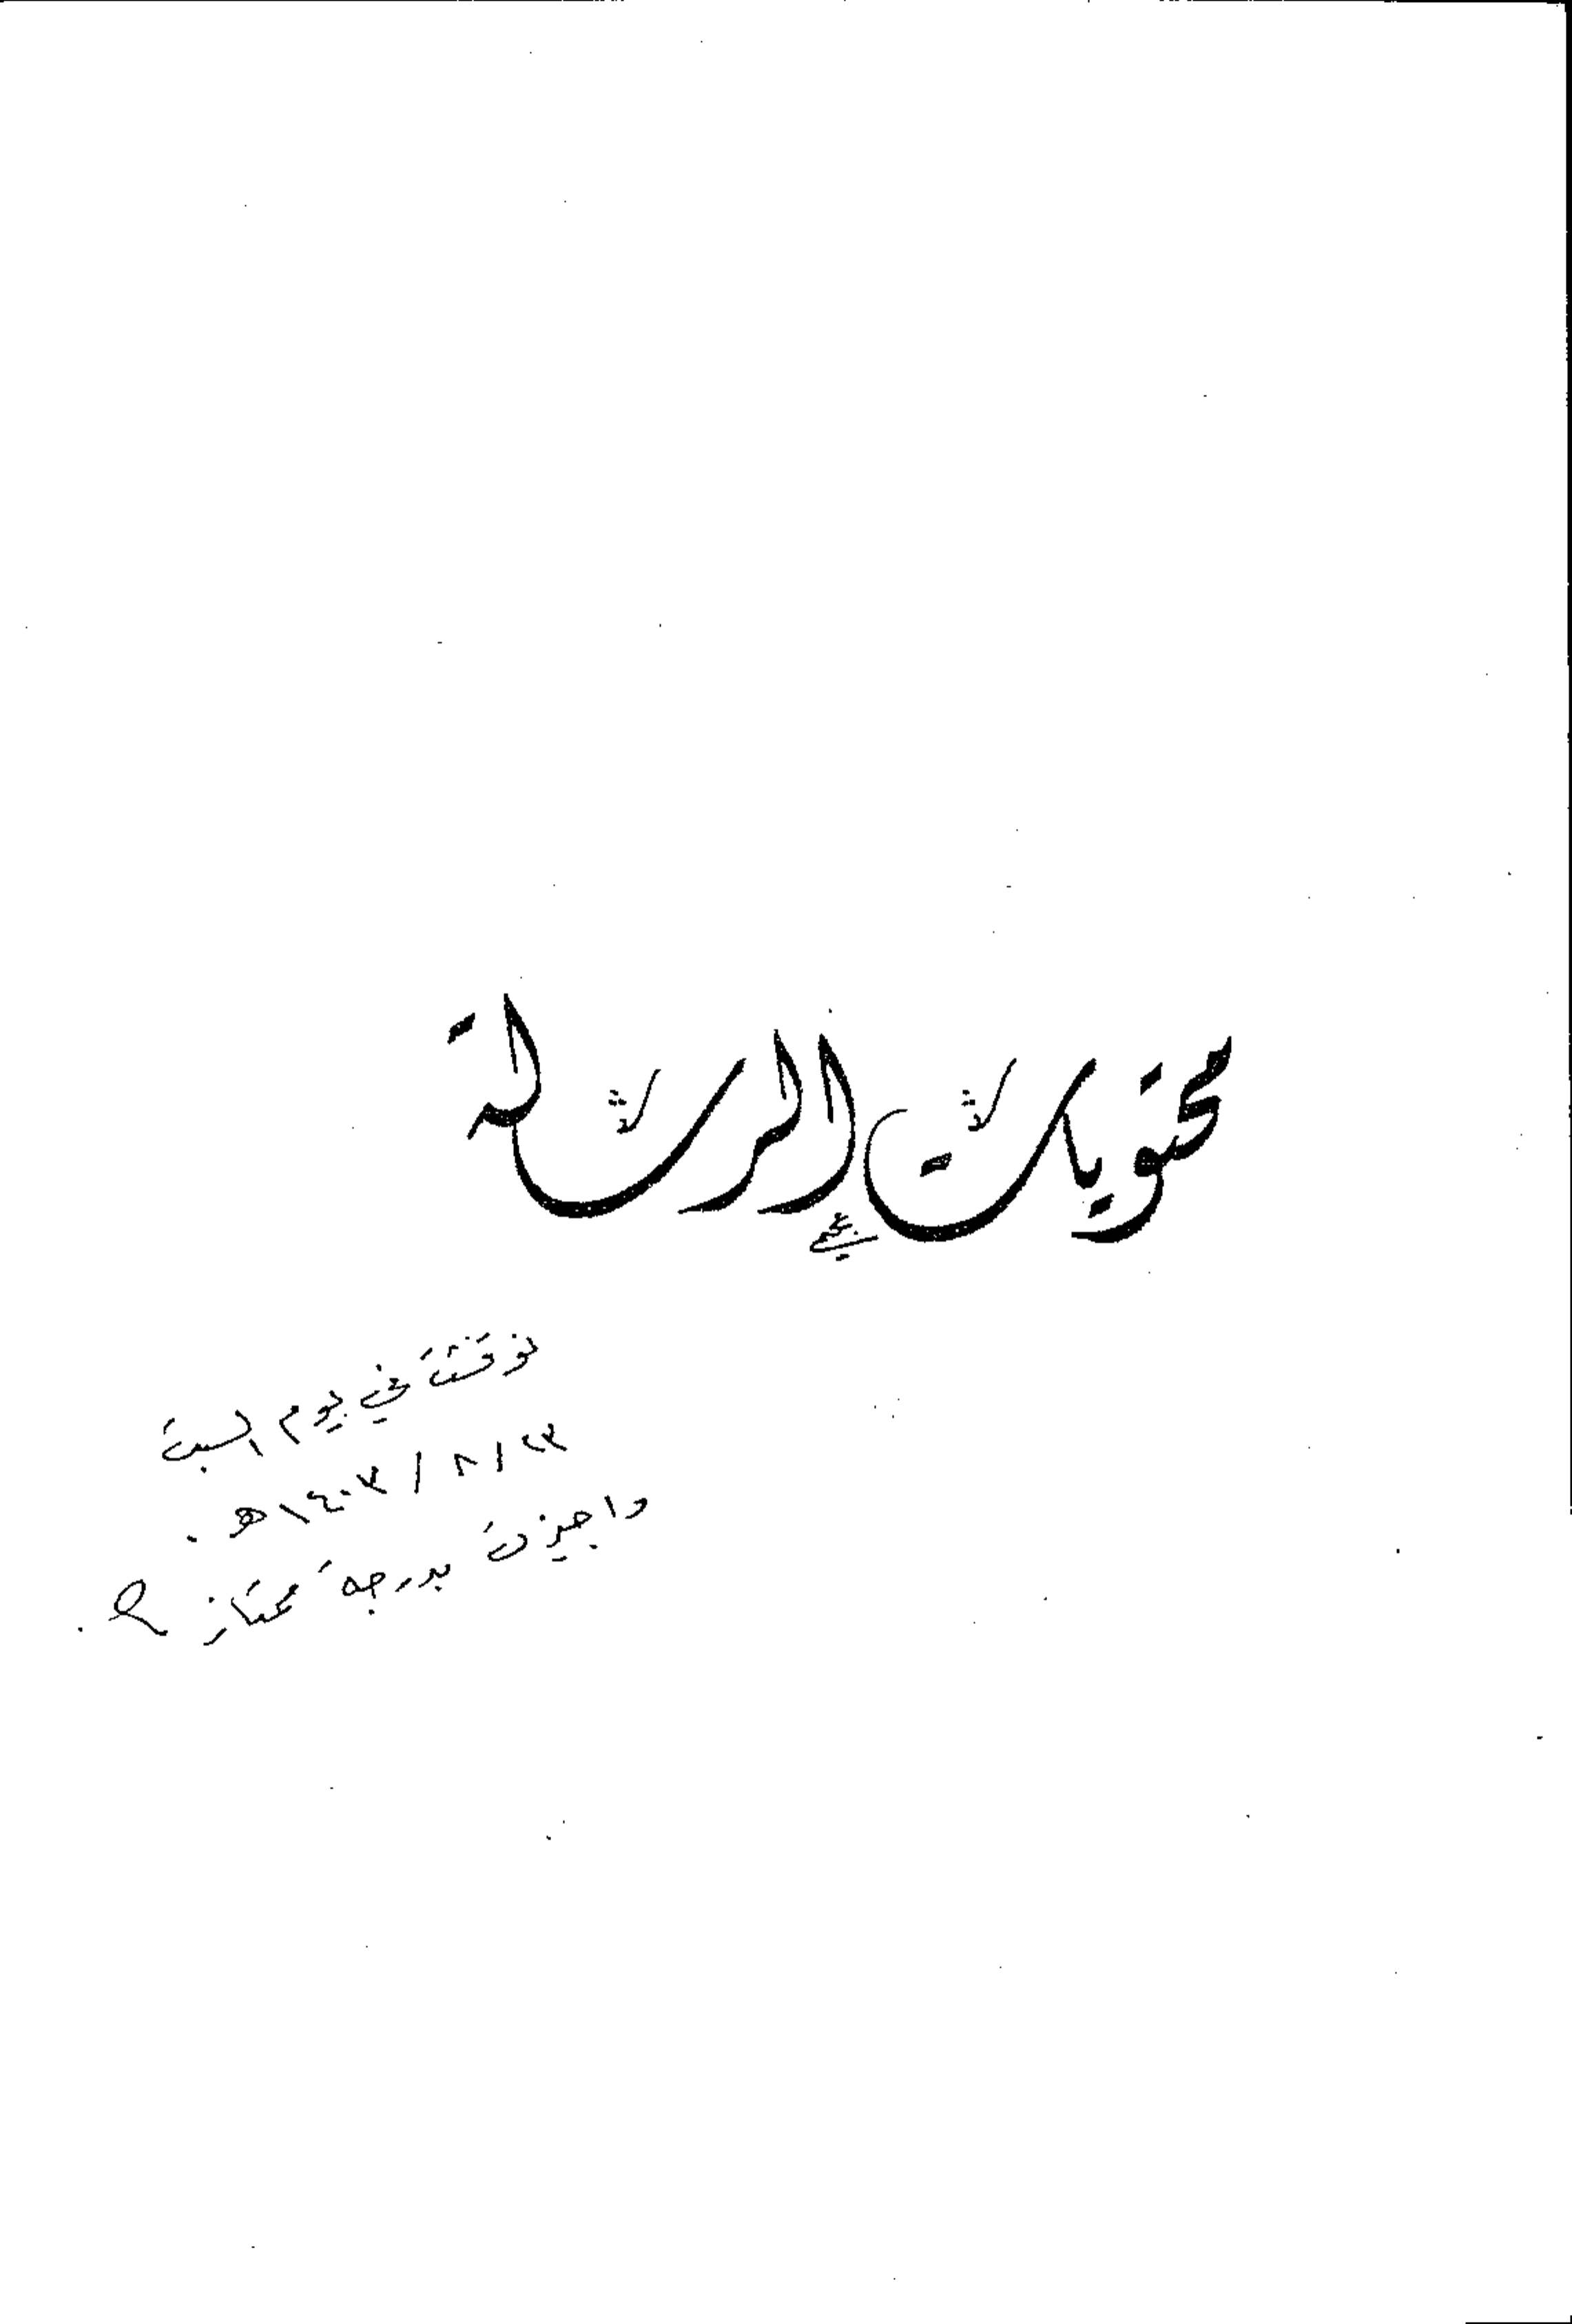 محتويات الرسالة
نوقشت في يوم السبت
٢٣ / ٨ / ١٤٠٣ هـ .
واجيزت بدرجة ممتاز